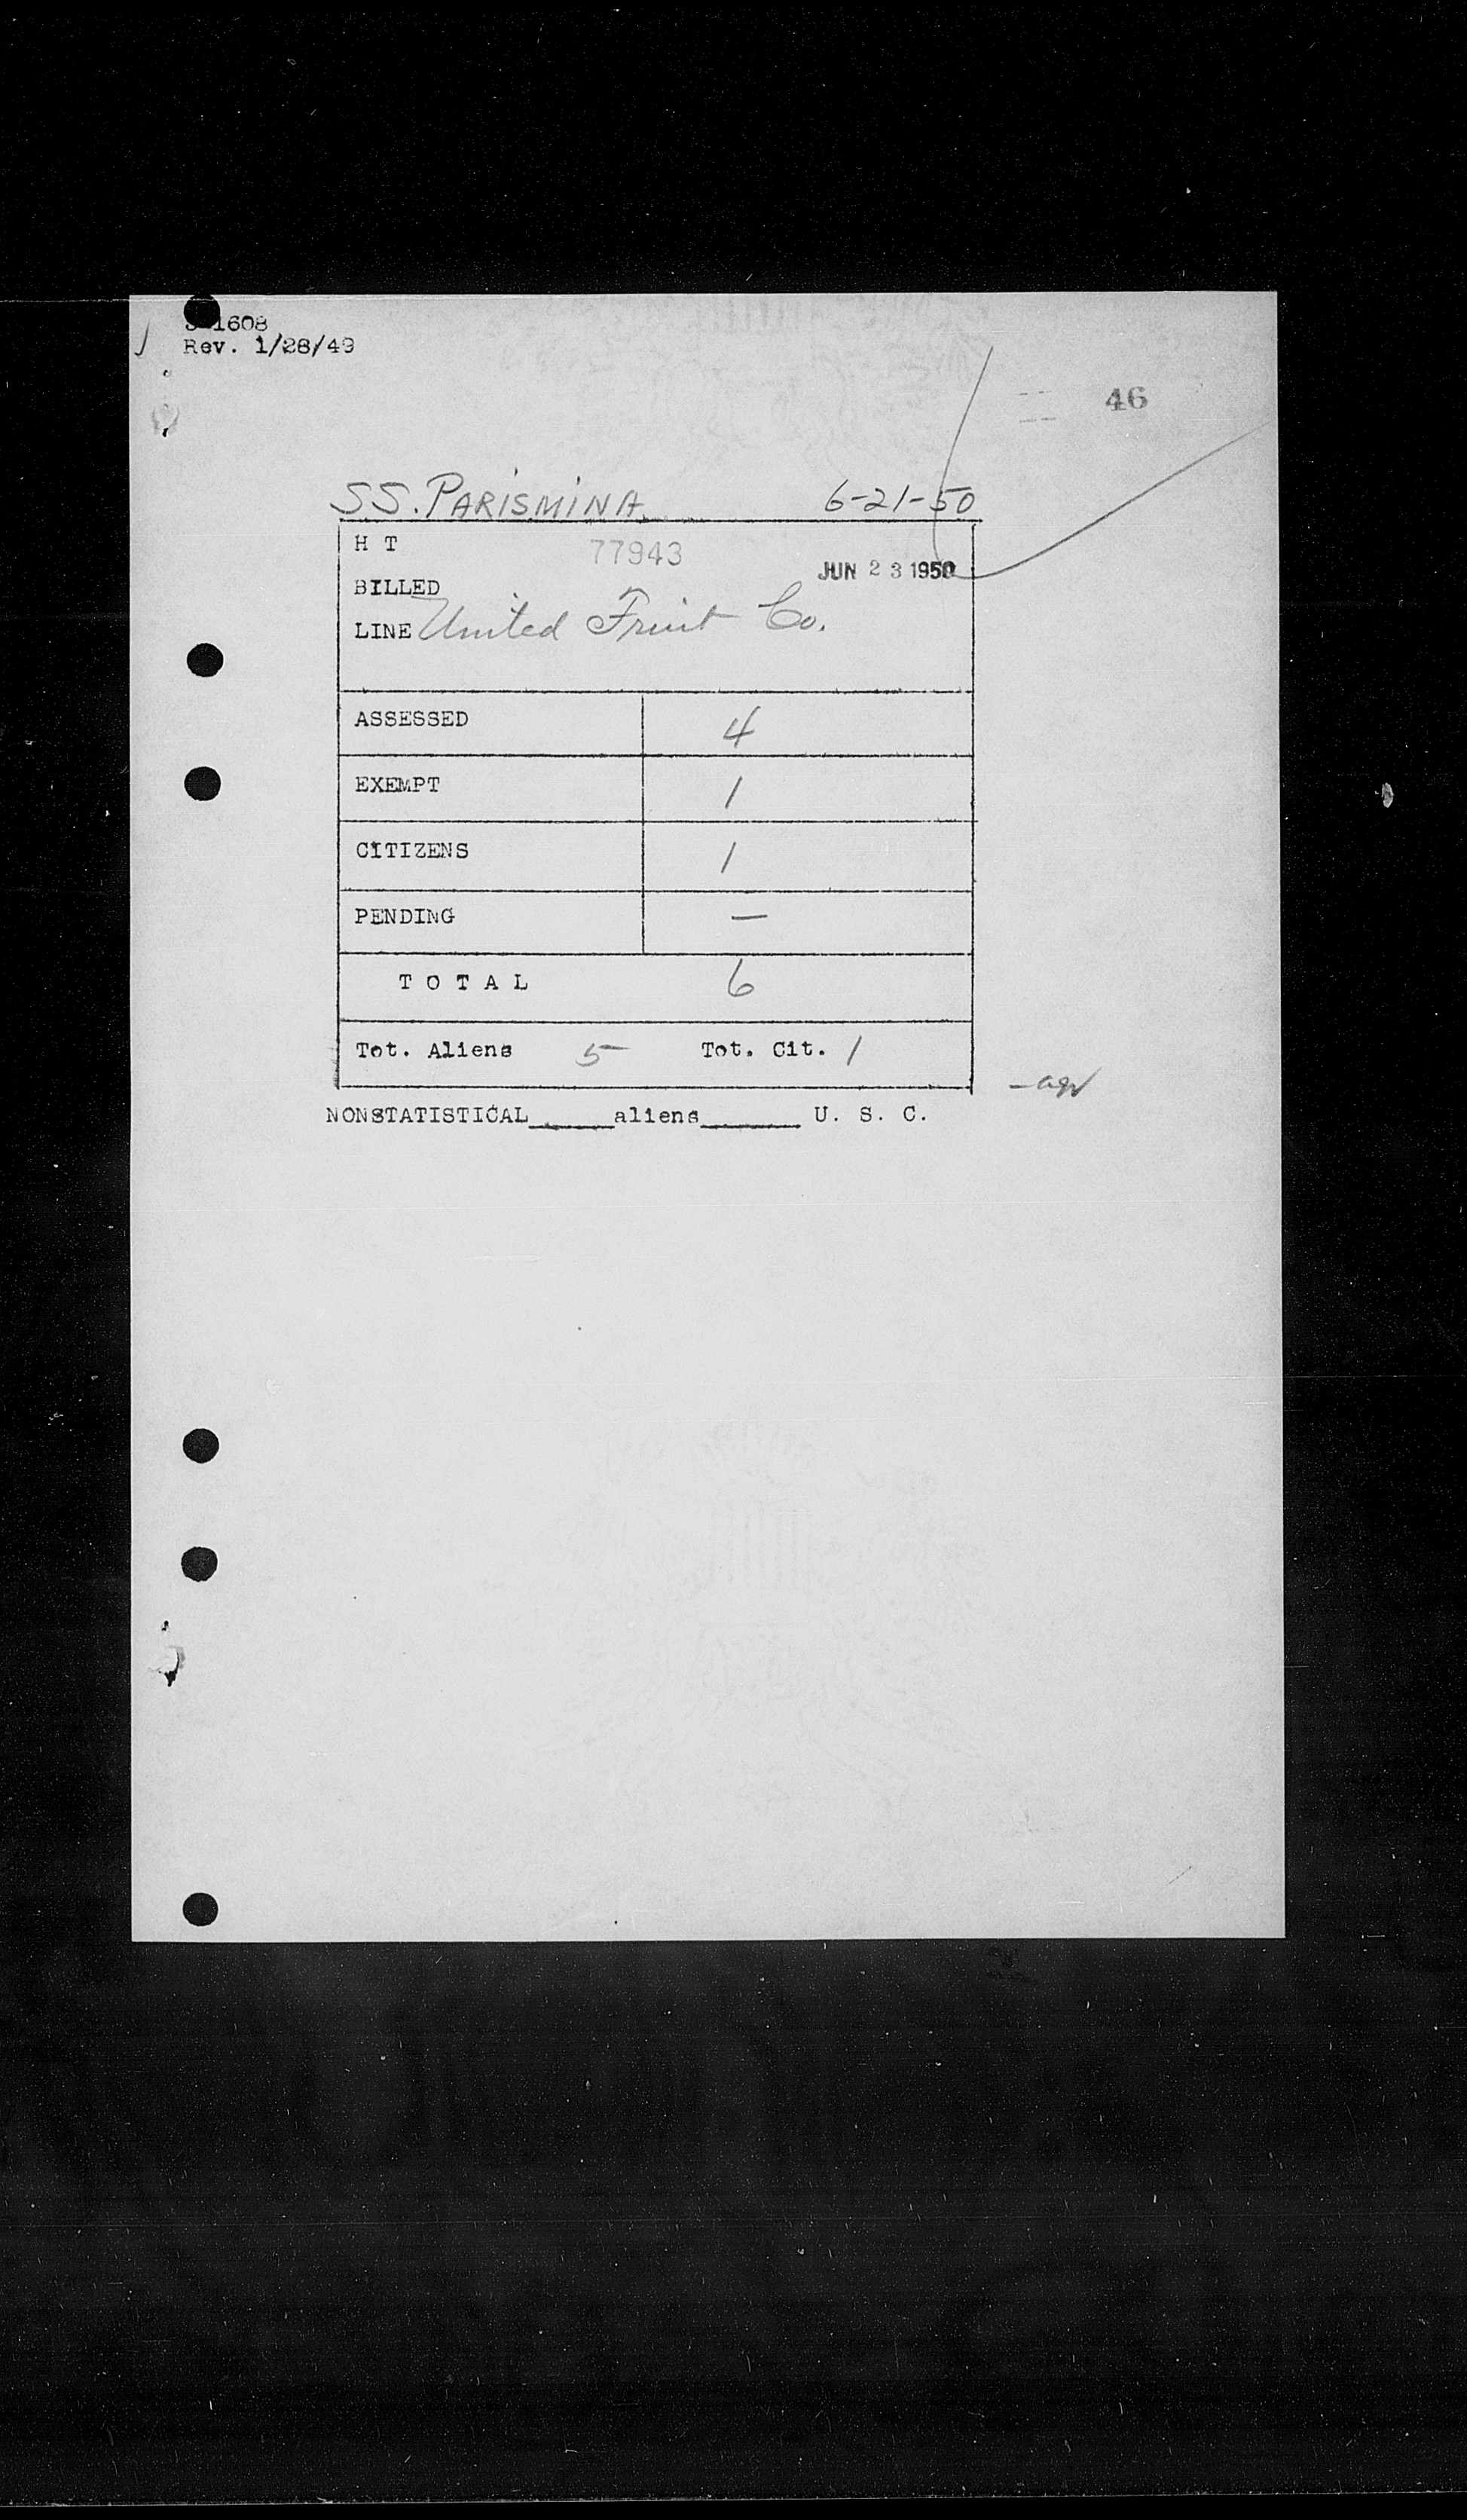 1608
Rev. 1/28/49
46
SS. PARISMINA 6-21-50
H T 77943
JUN 23 1950
BILLED
LINE United Fruit Co.
ASSESSED 4
EXEMPT 1
CITIZENS 1
PENDING —
TOTAL 6
Tot. Aliens 5 Tot. Cit. 1
NONSTATISTICAL_____aliens_____ U. S. C.